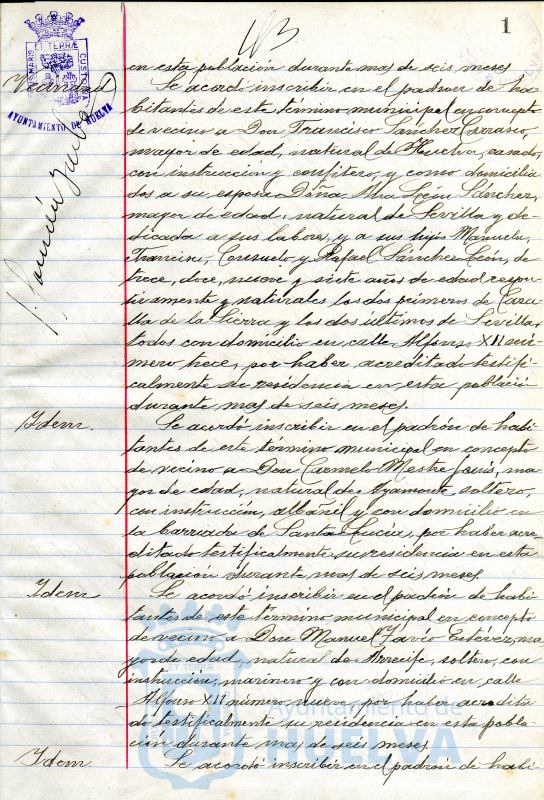 1
en esta población durante mas de seis meses
Vecindad
Se acordó inscribir en el padron de ha-
bitantes de este término municipal en concepto
de vecino a Don Francisco Sánchez Carrasco,
mayor de edad, natural de Huelva, casado,
con instruccion y confitero, y como domicilia
dos a su esposa Doña Ana León Sánchez,
mayor de edad, natural de Sevilla y de-
dicada a sus labores, y a sus hijos Manuela,
Francisco, Consuelo y Rafael Sánchez León, de
trece, doce, nueve y siete años de edad respec
tivamente y naturales los dos primeros de
lla de la Sierra y los dos últimos de Sevilla,
todos con domicilio en calle Alfonso XII nú
mero trece, por haber acreditado testifi-
calmente su residencia en esta població
durante mas de seis meses.
Idem.
Se acordó inscribir en el padrón de habi-
tantes de este término municipal en concepto
de vecino a Don Carmelo Mestre, ma-
yor de edad, natural de Ayamonte, soltero,
con instrucción, albañil y con domicilio en
la Barriada de Santa Lucía, por haber acre-
ditado testificalmente su residencia en esta
población durante mas de seis meses.
Idem
Se acordó inscribir en el padrón de habi-
tantes de este término municipal en concepto
de vecino a Don Manuel Estévez, ma-
yor de edad, natural de Arrecife, soltero, con
instrucción, marinero y con domicilio en calle
Alfonso XII número nueve por haber acredita
do testificalmente su residencia en esta pobla-
ción durante mas de seis meses.
Idem.
Se acordó inscribir en el padrón de habi-
AYUNTAMIENTO DE HUELVA
Ayuntamiento de
HUELVA